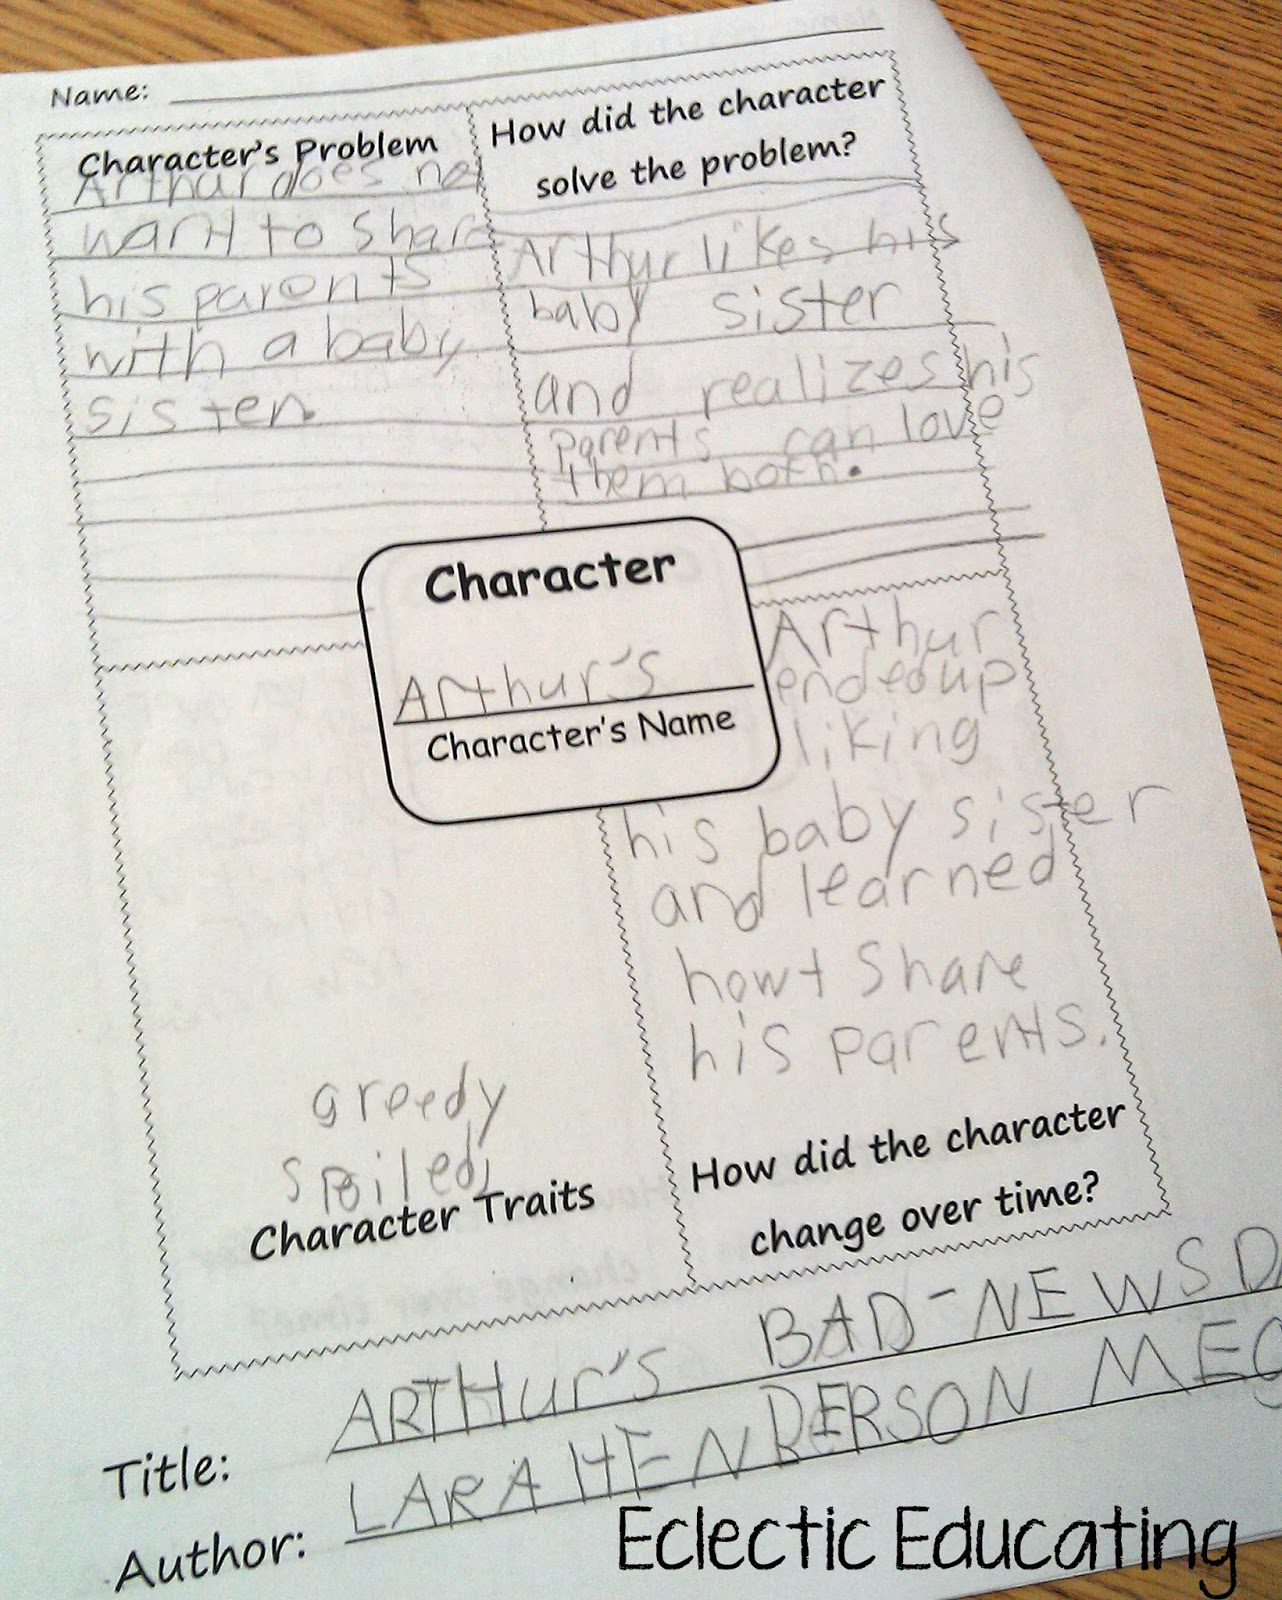 Name:
Character's Problem
Arthur does not
want to share
his parents
with a baby
sister.
How did the character
solve the problem?
Arthur likes his
baby sister
and realizes his
parents can love
them both.
Character
Arthur's
Character's Name
greedy
spoiled
Character Traits
Arthur
endedup
liking
his baby sister
and learned
howt share
his parents.
How did the character
change over time?
Title: ARTHur's BAD-NEWSD
Author: LARA HENDERSON MEG
Eclectic Educating